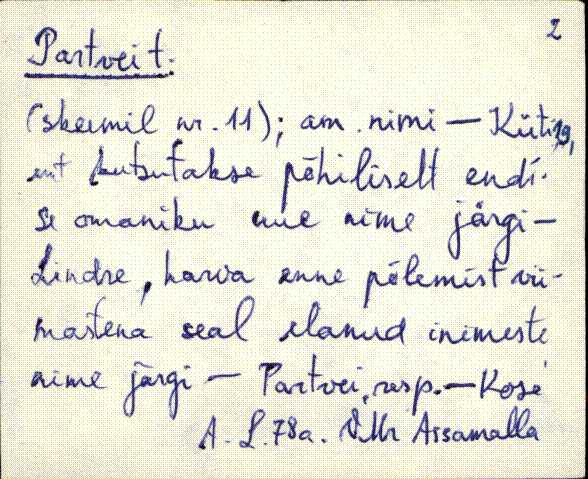 2
Partvei t.
(skeemil nr. 11); am. nimi — Küti, 19,
ent kutsutakse põhiliselt endi-
se omaniku uue nime järgi —
Lindre, harva enne põlemist vii-
mastena seal elanud inimeste
nime järgi — Partvei, resp. — Kose
A. L. 78a. VMr Assamalla